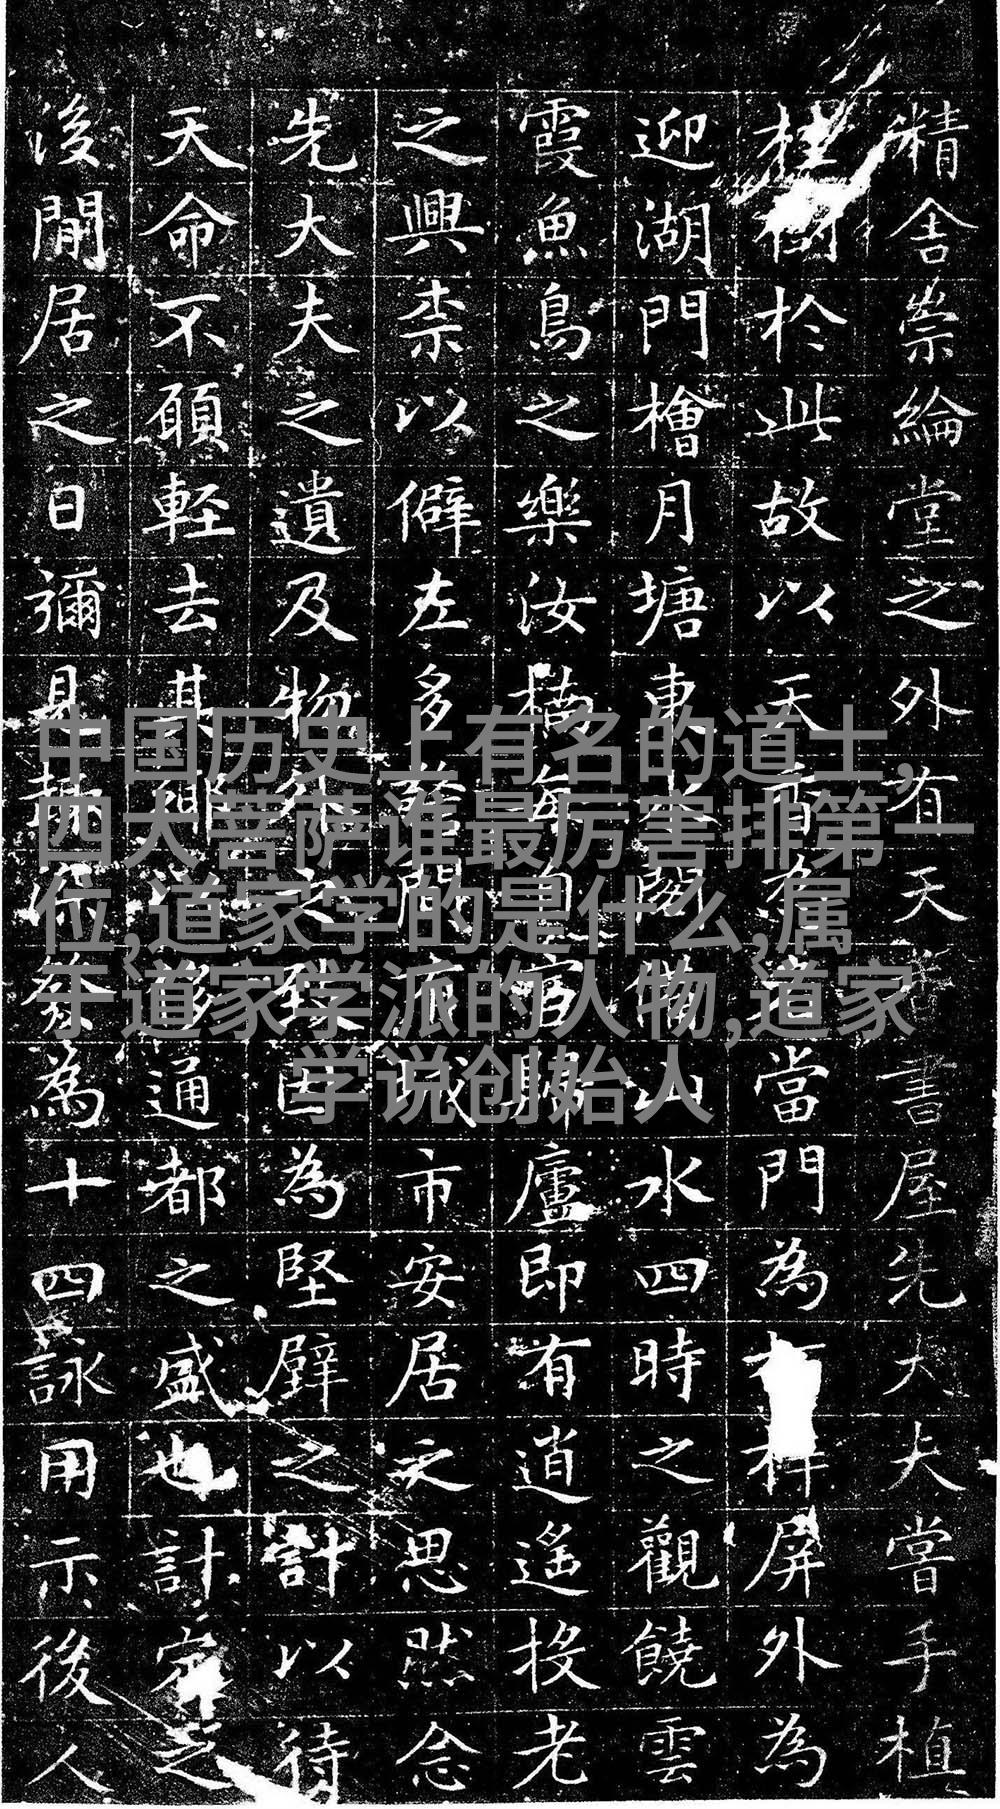 精舍崇綸堂之外有天書屋先大夫嘗手植
桂樹於此故以天香當門為樨屏外為
迎湖門檜月塘東水閣山水四時之觀饒雲
霞魚鳥之樂汝楠每自歸廬即有逍遙投老
之興柰以僻左多閒市安居之思然念
先大夫之遺及物外之致因為堅壁之計以待
天命不願輕去其鄉通都之盛也計定之
後閒居之日彌為十四詠用示後人
中国历史上有名的道士,
四大菩萨谁最厉害排第一
位,道家学的是什么,属
于道家学派的人物,道家
学说创始人